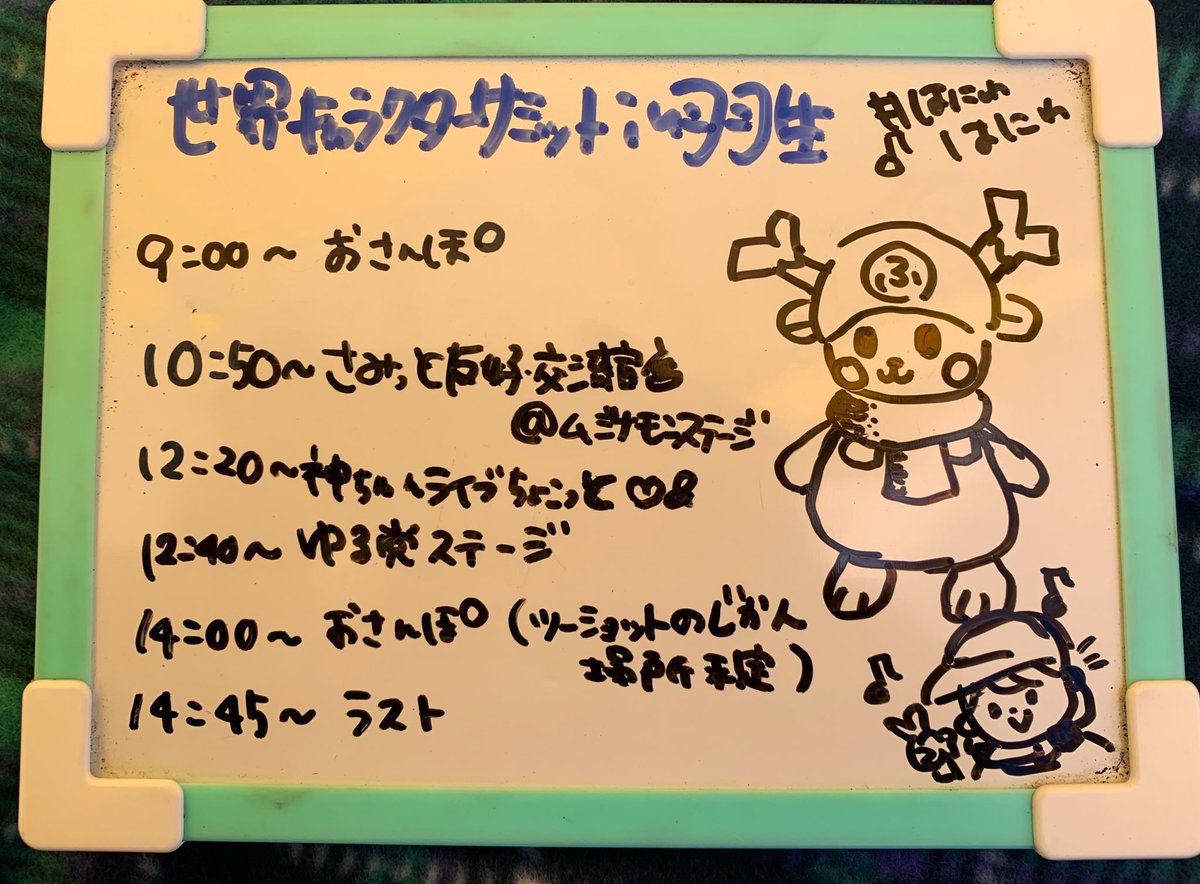 世界キャラクターサミットin羽生
#はにゅ
はにゅ
9:00～ おさんぽ
10:50～さみっと友好・交流宣言
@ムジナモンステージ
12:20～神ちゃんライブちょこっと♡
12:40～ ゆる党ステージ
14:00～ おさんぽ (ツーショットのじかん
場所未定)
14:45～ ラスト
ふ